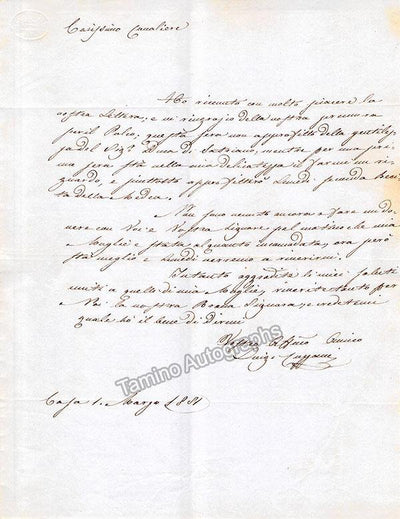 Carissimo Cavaliere
Ho ricevuto con molto piacere la
vostra Lettera, e vi ringrazio della vostra premura
per il Palco; questa sera non approfitto della gentilez
za del Sigr Duca di Satriano, mentre per una pri
ma sera sta alla mia delicatezza il farmi un ri
guardo, e piuttosto approfitterò Lunedì seconda Reci
ta della Medea.
Non sono venuto ancora a fare un do
vere con Voi e Vostra Signora pel motivo che mia
Moglie è stata alquanto incomodata, ora però
sta meglio e Lunedì verremo a riverirvi.
Intanto aggradite li miei saluti
uniti a quelli di mia Moglie, riverite tanto per
e Voi la vostra Buona Signora, e credetemi
quale ho il bene di Dirmi
Vostro Affmo Amico
Luigi
Tamino Autographs
Casa 1. Marzo 1851